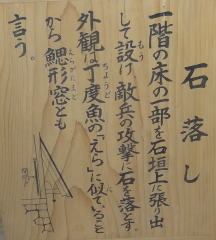 石落し
一階の床の一部を石垣上に張り出
して設け、敵兵の攻撃に石を落とす。
外観は丁度魚の「えら」に似ていること
から鰓形窓とも
言う。
もう
ちょうど
に
えらがたまど